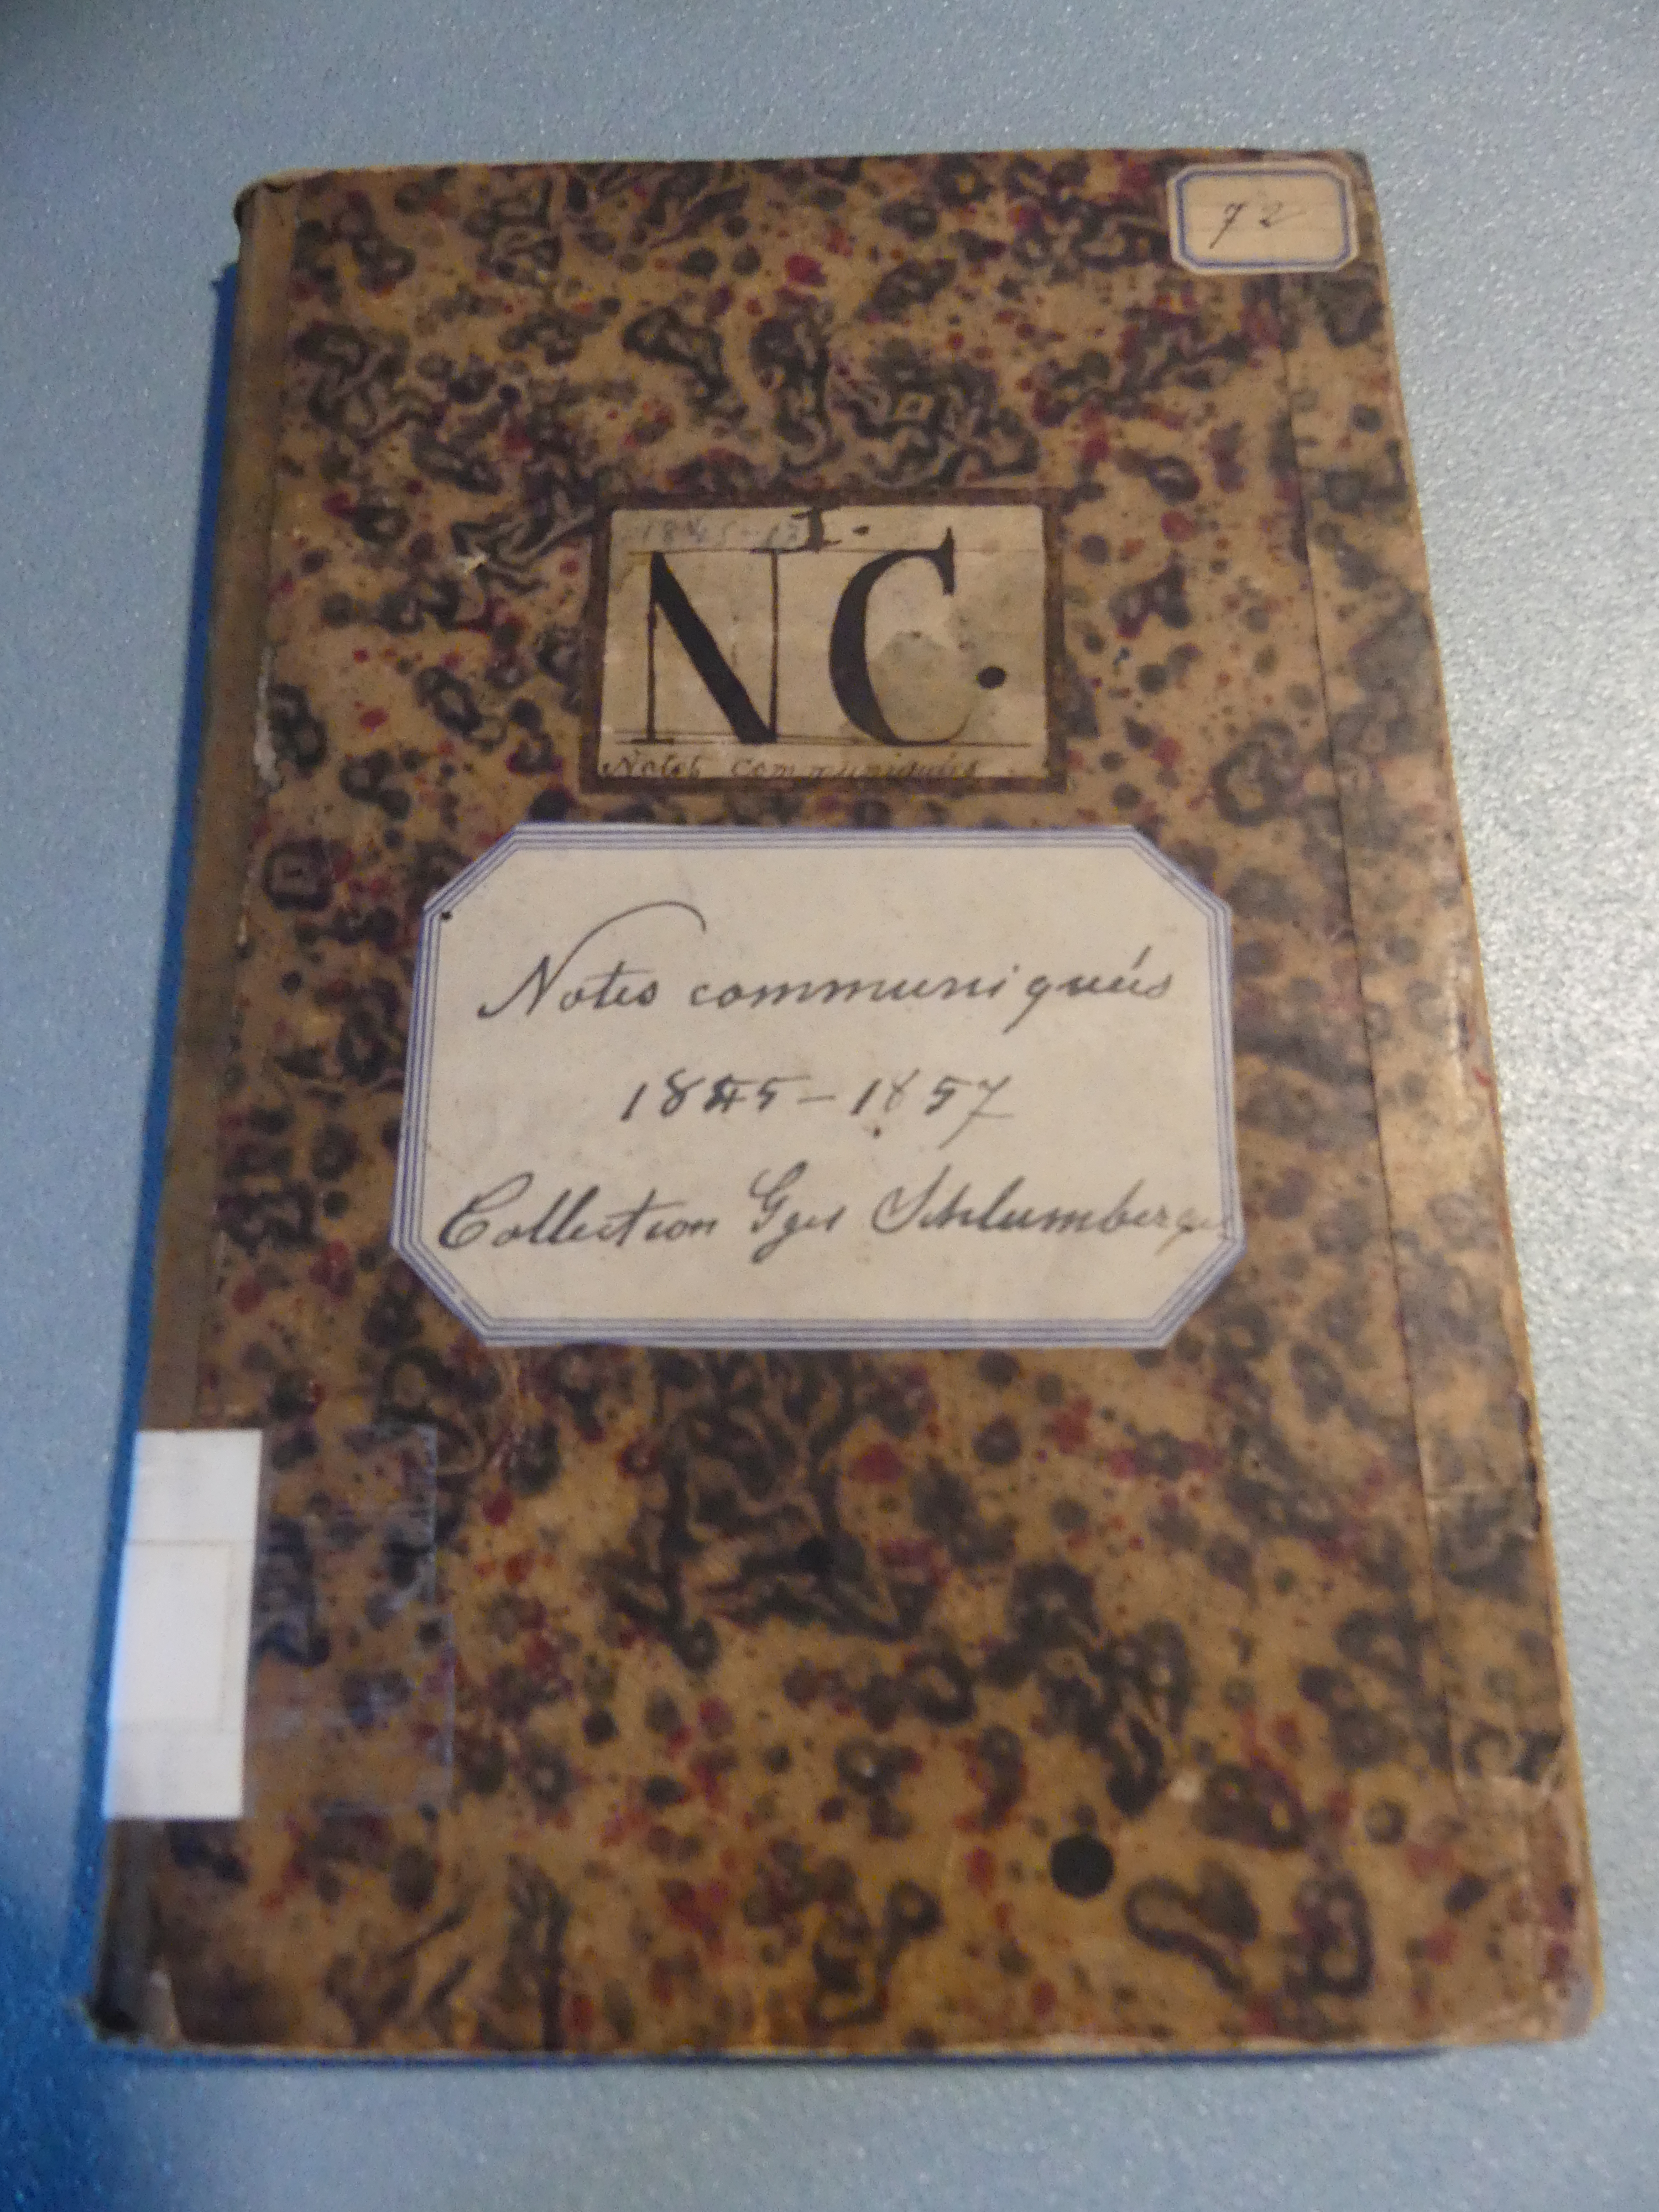 72
I.
N C.
Notes communiqués
Notes communiqués
1845-1857
Collection Gges Schlumberger